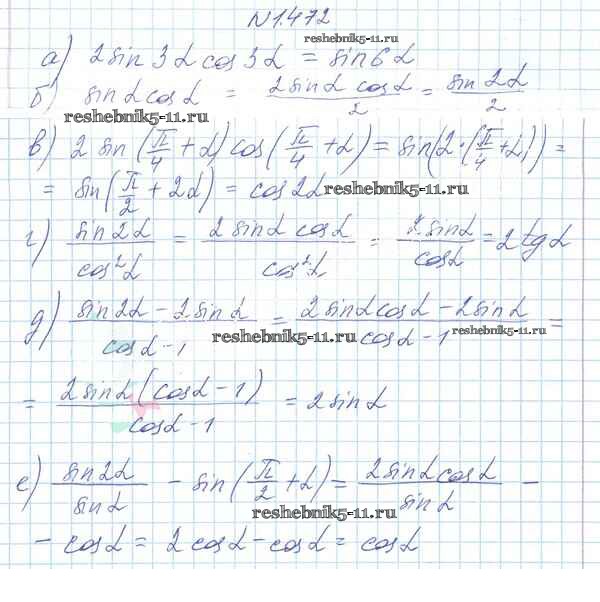 N1.472
reshebnik5-11.ru
а) 2 sin 3α cos 3α = sin 6α
б) sin α cos α = 2 sin α cos α / 2 = sin 2α / 2
reshebnik5-11.ru
в) 2 sin (π/4 + α) cos (π/4 + α) = sin (2 · (π/4 + α)) =
= sin (π/2 + 2α) = cos 2α reshebnik5-11.ru
г) sin 2α / cos² α = 2 sin α cos α / cos² α = 2 sin α / cos α = 2 tg α
д) sin 2α − 2 sin α / cos α − 1 = 2 sin α cos α − 2 sin α / cos α − 1 =
reshebnik5-11.ru reshebnik5-11.ru
= 2 sin α (cos α − 1) / cos α − 1 = 2 sin α
е) sin 2α / sin α − sin (π/2 + α) = 2 sin α cos α / sin α −
reshebnik5-11.ru
− cos α = 2 cos α − cos α = cos α